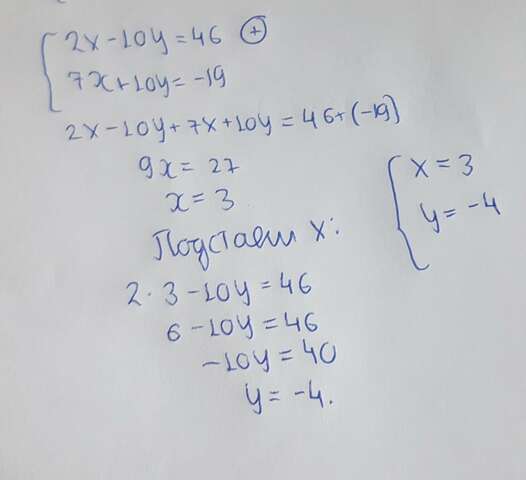 2x-10y=46 ⊕
7x+10y=-19
2x-10y+7x+10y=46+(-19)
9x=27
x=3
Подставим x:
2·3-10y=46
6-10y=46
-10y=40
y=-4.
x=3
y=-4